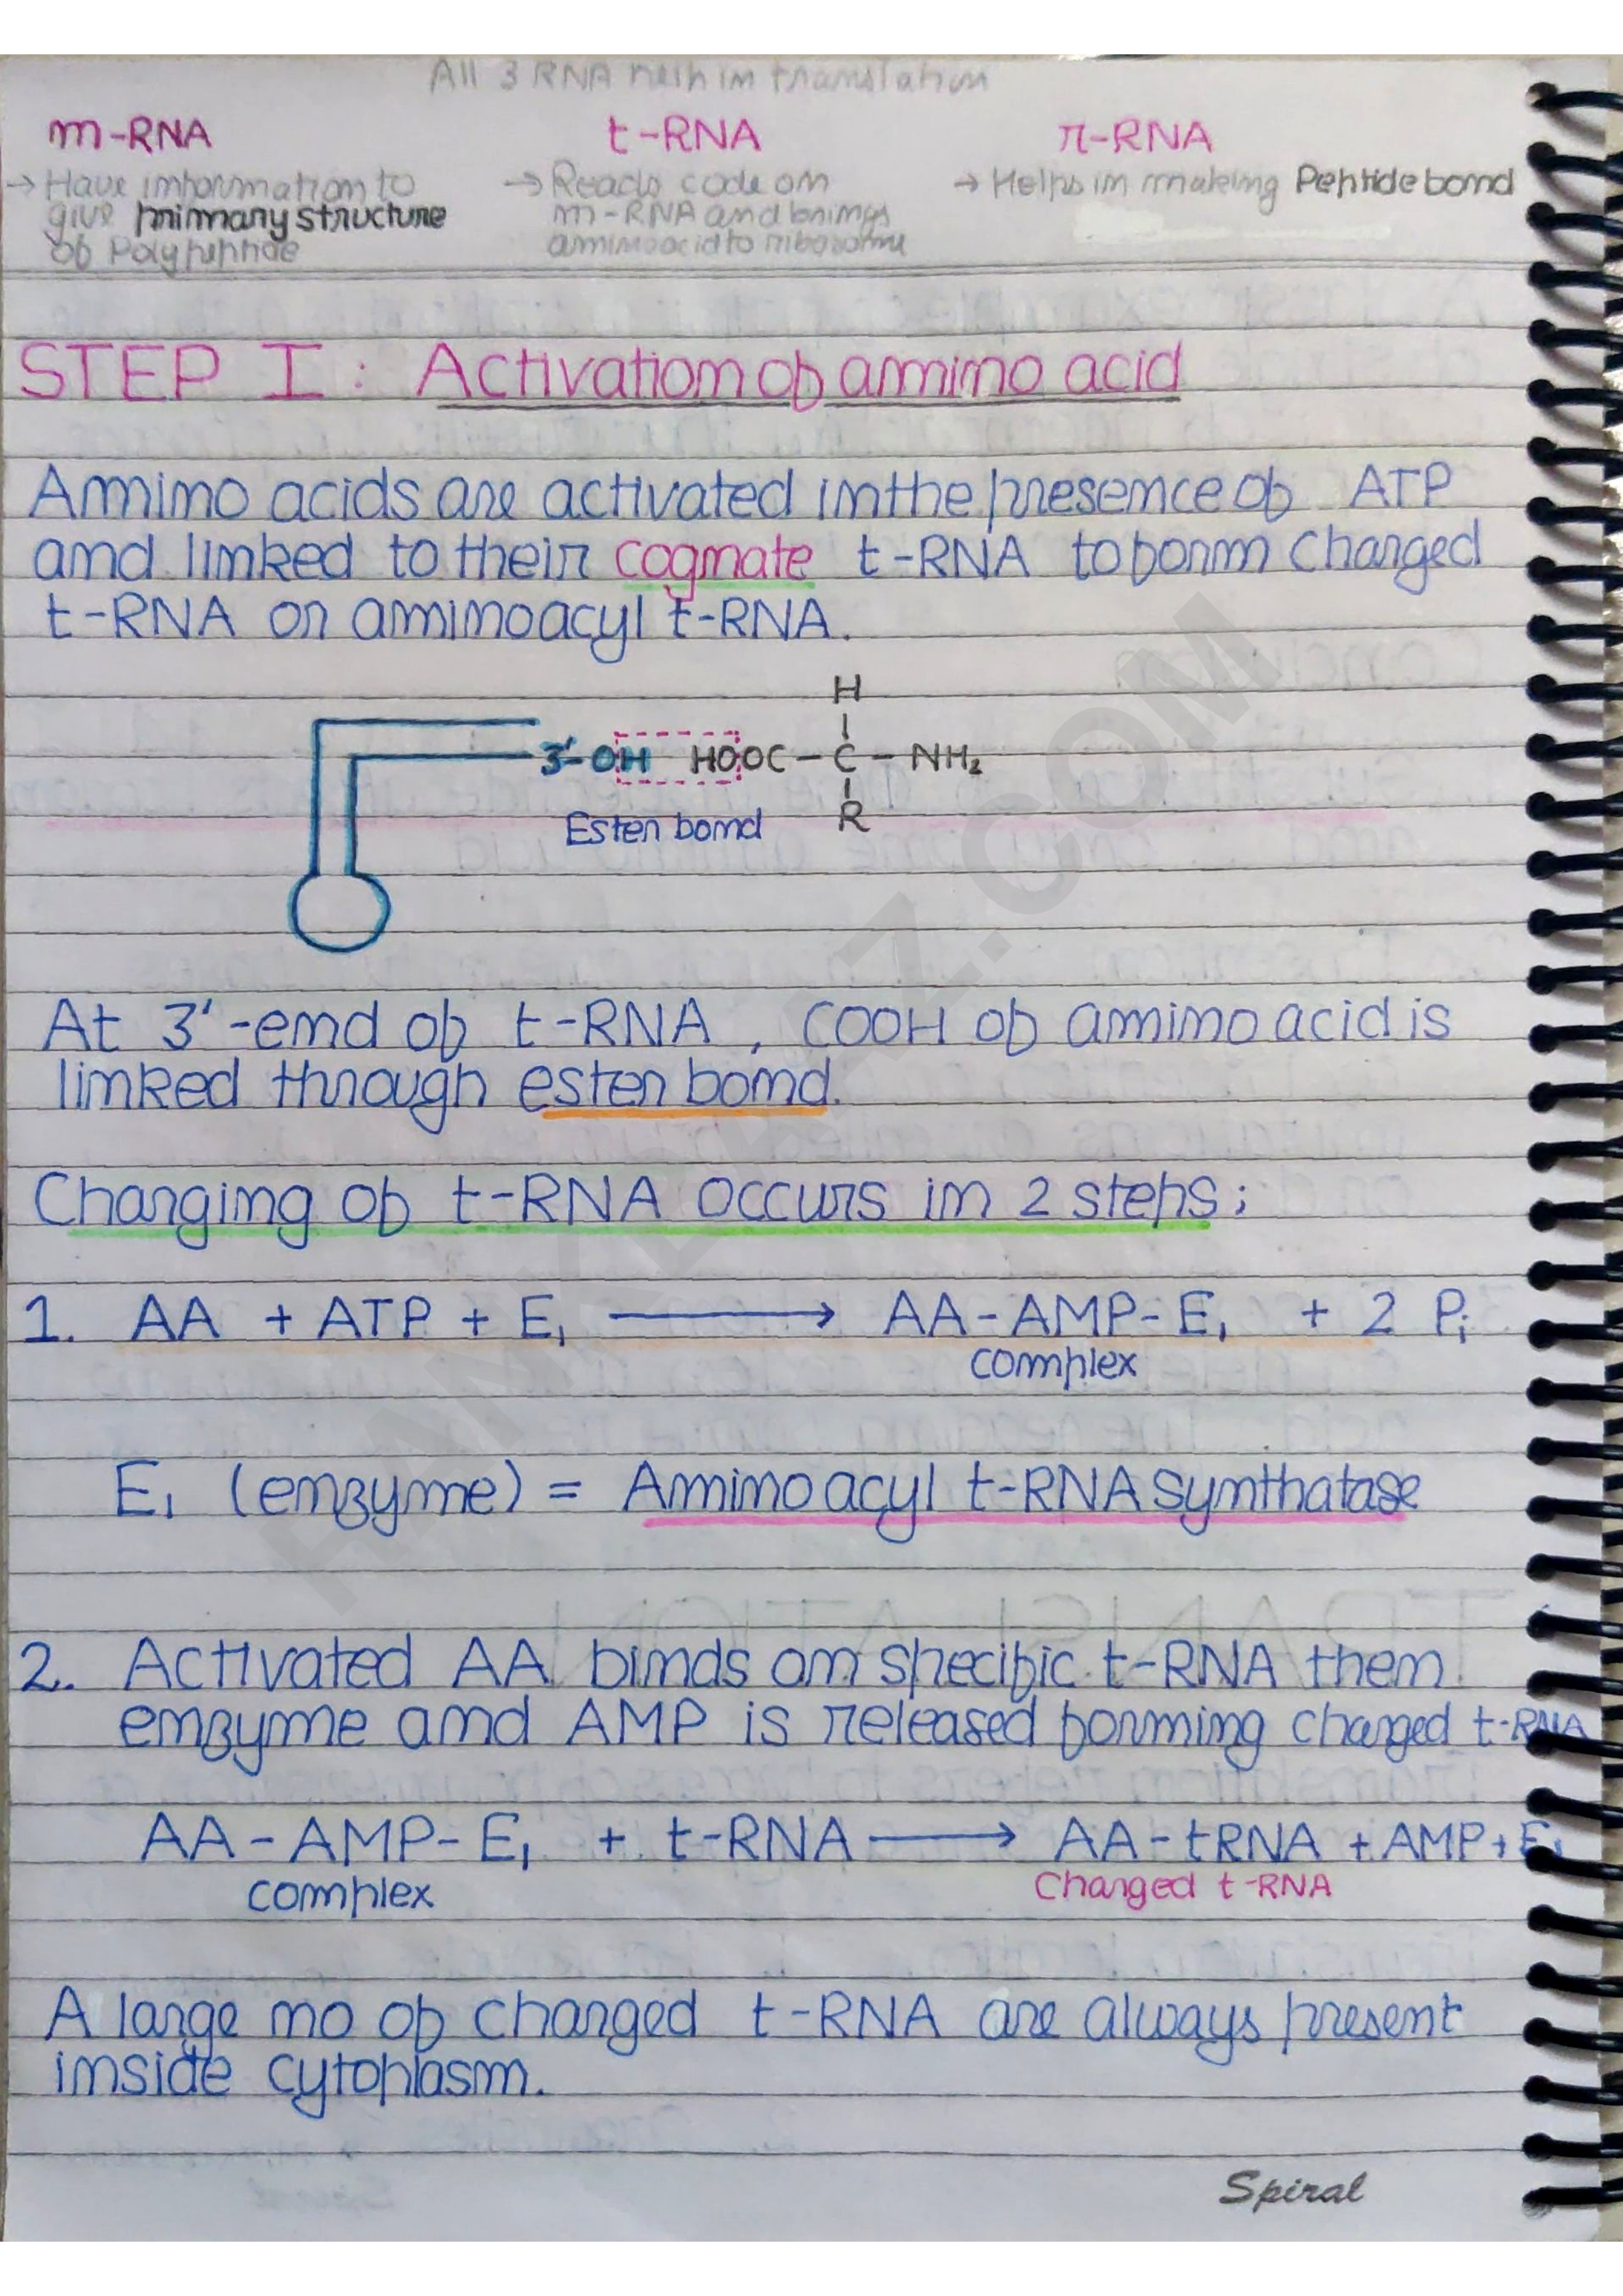 All 3 RNA help in translation
m-RNA t-RNA r-RNA
→ Have information to → Reads code on → Helps in making Peptide bond
give primary structure m-RNA and brings
of Polypeptide aminoacid to ribosome
STEP I : Activation of amino acid
Amino acids are activated in the presence of ATP
and linked to their cognate t-RNA to form charged
t-RNA or aminoacyl t-RNA.
H
3'-OH HOOC-C-NH₂
R
Ester bond
At 3'-end of t-RNA, COOH of amino acid is
linked through ester bond.
Charging of t-RNA occurs in 2 steps;
1. AA + ATP + E₁ ⟶ AA-AMP-E₁ + 2 Pi
complex
E₁ (enzyme) = Aminoacyl t-RNA synthatase
2. Activated AA binds on specific t-RNA then
enzyme and AMP is released forming charged t-RNA
AA-AMP-E₁ + t-RNA ⟶ AA-tRNA + AMP + E₁
complex Charged t-RNA
A large no of charged t-RNA are always present
inside cytoplasm.
Spiral